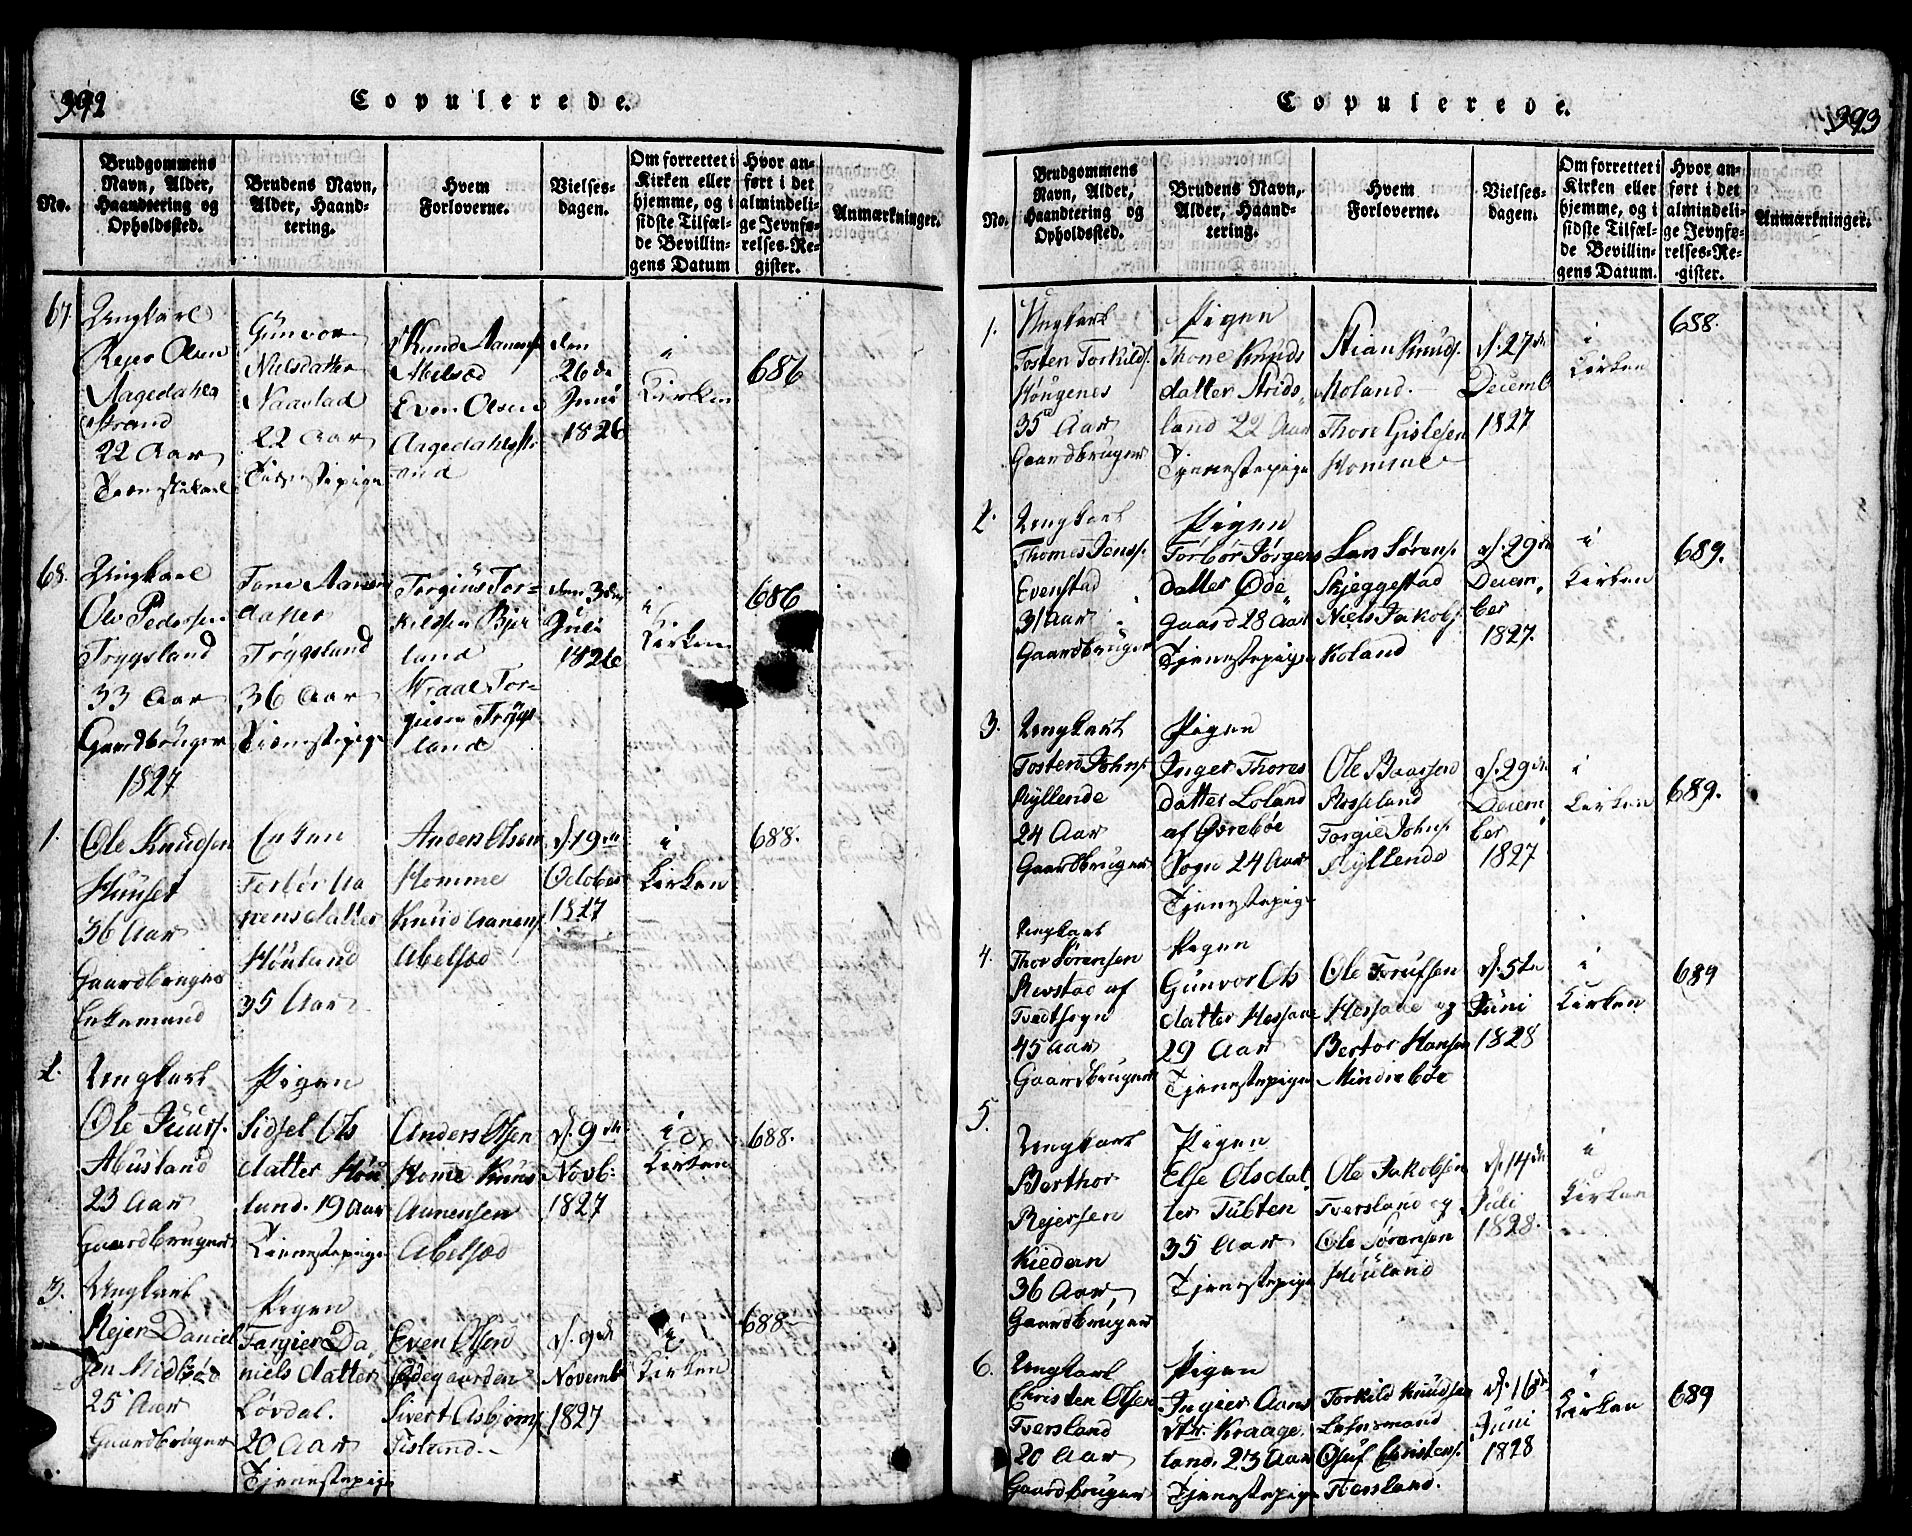 392
Copulerede.
No.
Brudgommens
Navn, Alder,
Haandtering og
Opholdssted.
Brudens Navn,
Alder, Haand-
tering.
Hvem
Forloverne.
Vielses-
dagen.
Om forrettet i
Kirken eller
hjemme, og i
sidste Tilfæl-
de Bevillin-
gens Datum
Hvor an-
ført i det
almindeli-
ge Jevnfø-
relses-Re-
gister.
Anmærkninger.
67.
Ungkarl
Rejer Olsen
Aagedahls
Strand
22 Aar
Tienestekarl
Gunvor
Nielsdatter
Naastad
22 Aar
Tienestepige
Knud Aanensø
Abilsød
Even Olsen
Aagedahlsstr
and
den
26de
Juni
1826
i
Kirken
686
68.
Ungkarl
Ole Pedersen
Trygsland
33 Aar
Gaardbruger
Tone Aanen
datter
Trygsland
36 Aar
Tienestepige
Torgius Tor-
kildsen Bjer
land
Wraal Tor-
giusen Trygs
land
den 3de
Juli
1826
i
Kirken
686
1827
1.
Ole Knudsen
Huuset
36 Aar
Gaardbruger
Enkemand
Enken
Torbør Aa
nensdatter
Høuland
35 Aar
Anders Olsen
Homme
Knud Aanens.
Abelsød
d. 19de
October
1827
i
Kirken
688.
2.
Ungkarl
Ole Juurs.
Abusland
23 Aar
Gaardbruger
Pigen
Sidsel Ols
datter Høu
land. 19 Aar
Tienestepige
Anders Olsen
Home Knus
Aanensen
Abelsød
d. 9de
Novb.
1827
i
Kirken
688.
3.
Ungkarl
Rejer Daniel
sen Midbød
25 Aar
Gaardbruger
Pigen
Targier Da
niels datter
Løvdal.
20 Aar
Tjenestepige
Even Olsen
Ødegaarden
Sivert Asbjøns.
Sisland.
d. 9de
Novemb.
1827
i
Kirken
688
393
Copulerede.
No.
Brudgommens
Navn, Alder,
Haandtering og
Opholdssted.
Brudens Navn,
Alder, Haand-
tering.
Hvem
Forloverne.
Vielses-
dagen.
Om forrettet i
Kirken eller
hjemme, og i
sidste Tilfæl-
de Bevillin-
gens Datum.
Hvor an-
ført i det
almindeli-
ge Jevnfø-
relses-Re-
gister.
Anmærkninger.
1.
Ungkarl
Tosten Torkilds.
Høugenes
35 Aar
Gaardbruger
Pigen
Thone Knuds
datter Strids,
land 22 Aar
Tjenestepige
Stian Knuds.
Moland.
Thore Gislesen
Homme
d. 27de
Decemb
1827
i
Kirken
688.
2.
Ungkarl
Thomes Jenss.
Evenstad
31 Aar
Gaardbruger
Pigen
Torbør Jørgens
datter Øde
gaard 28 Aar
Tjenestepige
Lars Sørens.
Skjeggestad
Niels Jakobs.
Koland
d. 29de
Decem
ber
1827.
i
Kirken
689.
3.
Ungkarl
Tosten Johns.
Kyllende
24 Aar
Gaardbruger
Pigen
Inger Thores
datter Loland
af Øvrebøe
Sogn 24 Aar
Tjenestepige
Ole Baarsen
Rosseland
Torgie Johns.
Kyllende
d. 29de
Decem
ber
1827
i
Kirken
689.
4.
Ungkarl
Thor Sørensen
Revstad af
Tvedtsogn
45 Aar
Gaardbruger
Pigen
Gunvor Ols
datter Hessaae
29 Aar
Tjenestepige
Ole Torufsen
Hessaae og
Bertor Hansen
Mindrebøe
d. 5te
Juni
1828
i
Kirken
689
5.
Ungkarl
Berthor
Rejersen
Kiedern
36 Aar,
Gaardbruger
Pigen
Else Olsdat,
ter Tubten
35 Aar
Tjenestepige
Ole Jakobsen
Tversland og
Ole Sørensen
Høuland
d. 14de
Juli
1828.
i
Kirken
6.
Ungkarl
Christen Olsen
Tversland
20 Aar
Gaardbruger
Pigen
Ingier Aans
dtr. Kraage,
land. 23 Aar
Tjenestepige
Torkild Knudsen
Lehnsmand
Oluf Christens.
Tversland.
d. 16de
Juni
1828
i
Kirken
689